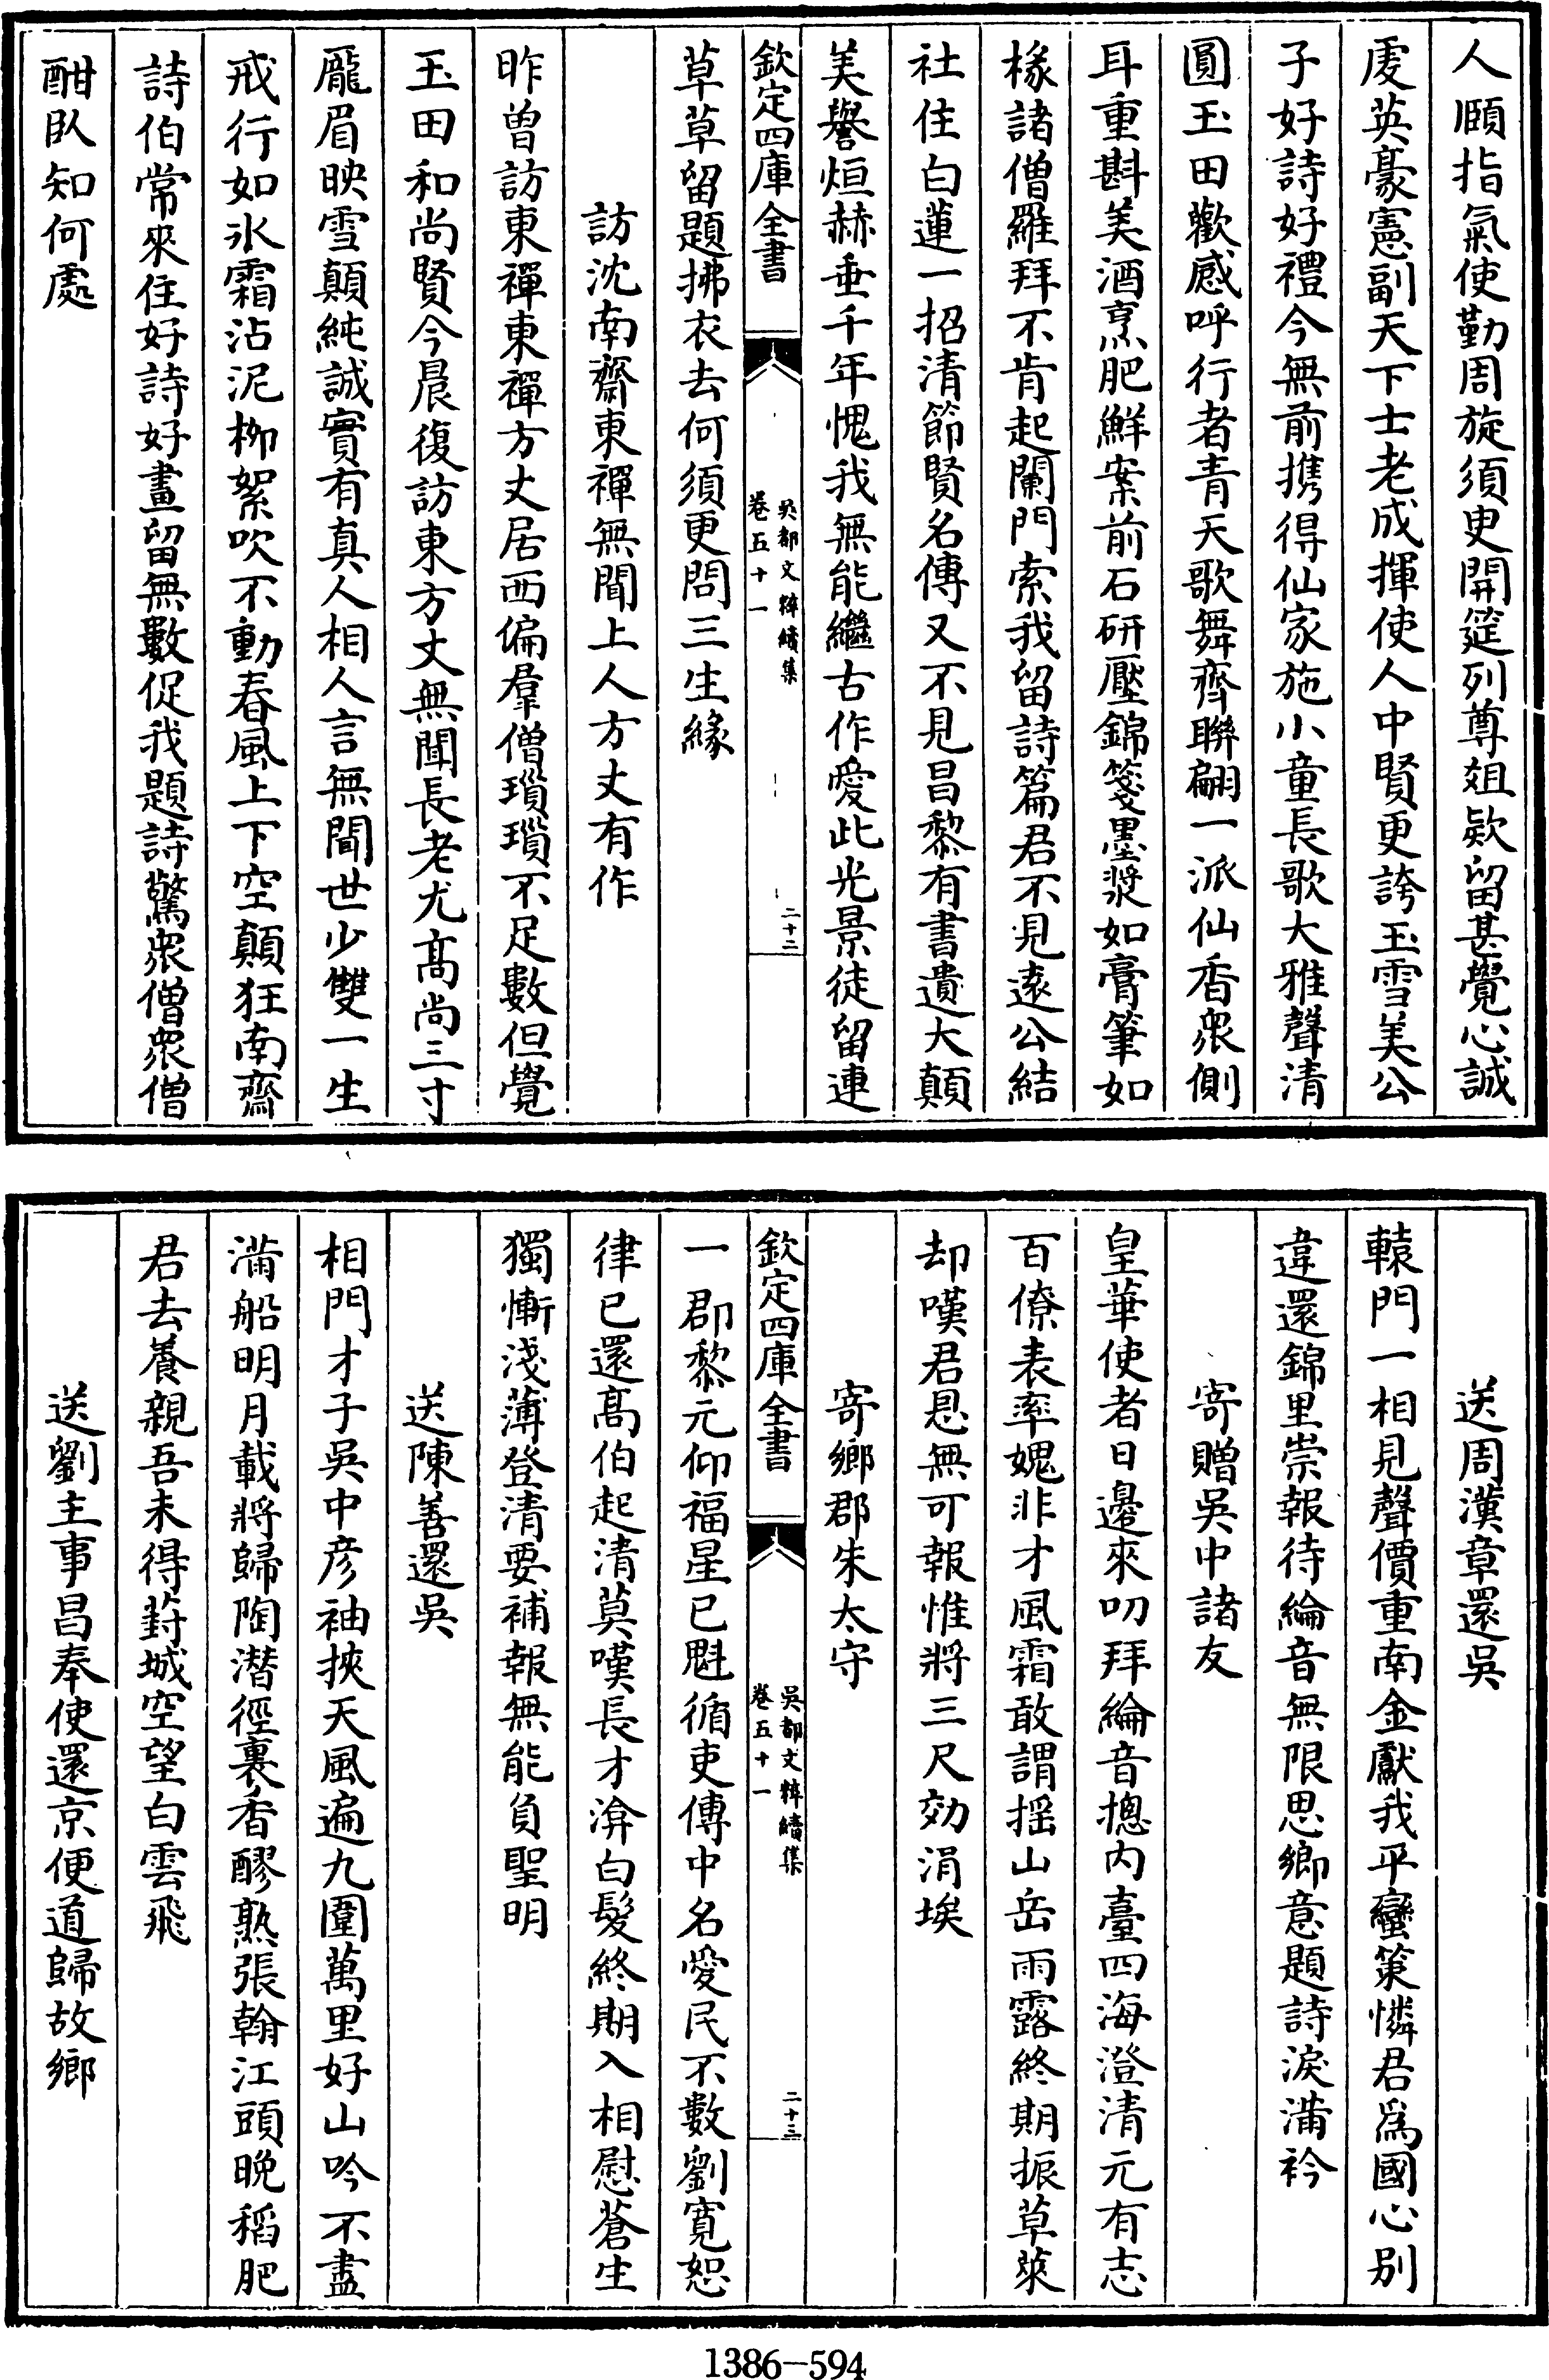 人頤指氣使勤周旋須臾開筵列尊俎欵留甚覺心誠
䖍英豪憲副天下士老成揮使人中賢更誇玉雪美公
子好詩好禮今無前携得仙家施小童長歌大雅聲清
圓玉田歡感呼行者青天歌舞齊聯翩一派仙香衆側
耳重斟美酒烹肥鮮案前石研壓錦箋墨漿如膏筆如
椽諸僧羅拜不肯起闌門索我留詩篇君不見逺公結
社住白蓮一招清節賢名傳又不見昌黎有書遺大顛
美譽烜赫垂千年愧我無能繼古作愛此光景徒留連
欽定四庫全書
吳都文粹續集
卷五十一
二十二
草草留題拂衣去何須更問三生緣
訪沈南齋東禪無聞上人方丈有作
昨曽訪東禪東禪方丈居西偏羣僧瑣瑣不足數但覺
玉田和尚賢今晨復訪東方丈無聞長老尤髙尚三寸
龎眉映雪顛純誠實有真人相人言無聞世少雙一生
戒行如氷霜沾泥栁絮吹不動春風上下空顛狂南齋
詩伯常來住好詩好畫留無數促我題詩驚衆僧衆僧
酣臥知何處
送周漢章還吳
轅門一相見聲價重南金獻我平蠻策憐君為國心别
違還錦里崇報待綸音無限思鄉意題詩淚滿衿
寄贈吳中諸友
皇華使者日邊來叨拜綸音摠内臺四海澄清元有志
百僚表率媿非才風霜敢謂揺山岳雨露終期振草萊
却嘆君恩無可報惟將三尺効涓埃
寄鄉郡朱太守
欽定四庫全書
吳都文粹續集
卷五十一
二十三
一郡黎元仰福星已魁循吏傳中名愛民不數劉寛恕
律已還髙伯起清莫嘆長才渰白髮終期入相慰蒼生
獨慚淺薄登清要補報無能負聖明
送陳善還吳
相門才子吳中彦袖挾天風遍九圍萬里好山吟不盡
滿船明月載將歸陶潜徑裏香醪熟張翰江頭晚稻肥
君去養親吾未得葑城空望白雲飛
送劉主事昌奉使還京便道歸故鄉
1386-594